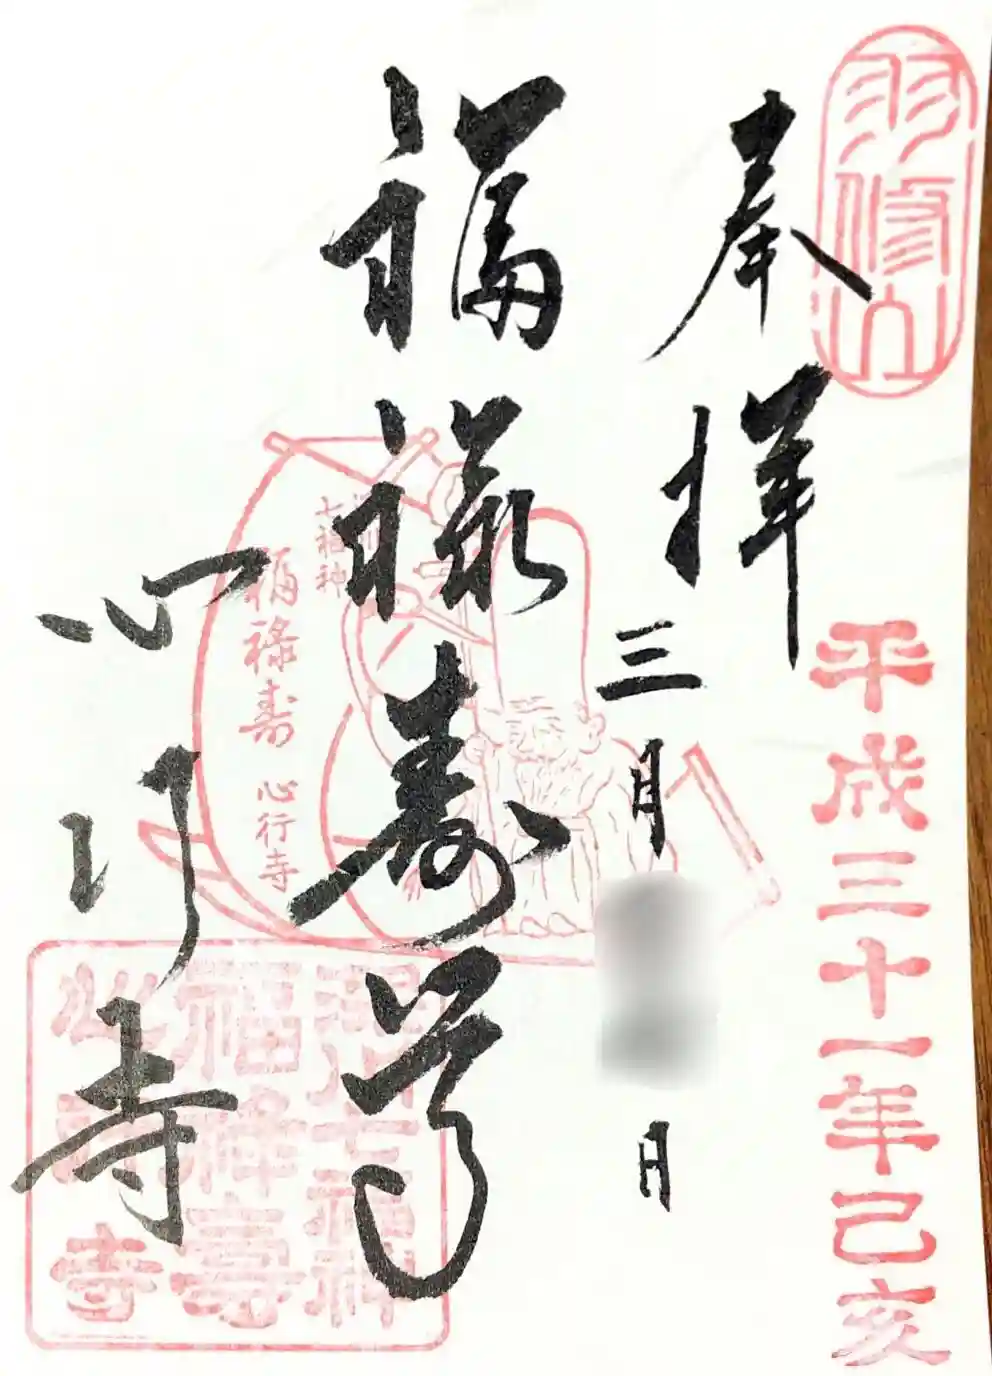 羽修山
平成三十一年己亥
奉拝
三月 日
福禄寿尊
心行寺
七福神
福禄寿 心行寺
七福神
福禄寿
心行寺